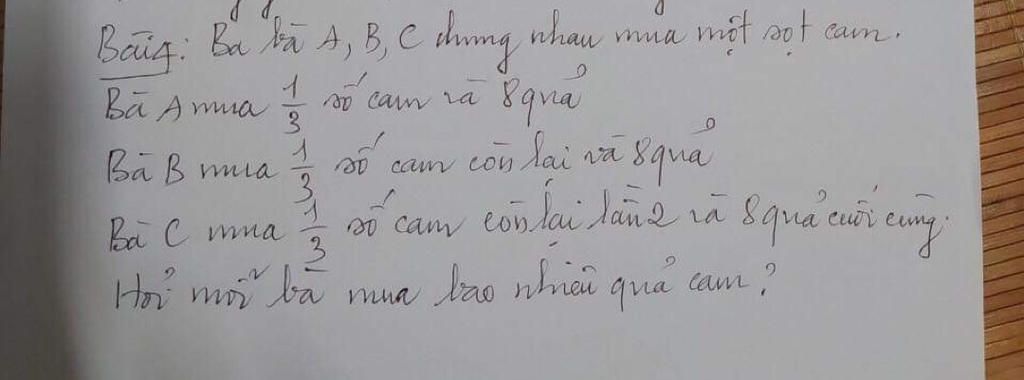 Bài 4: Ba bà A, B, C chung nhau mua một sọt cam.
Bà A mua 1/3 số cam và 8 quả
Bà B mua 1/3 số cam còn lại và 8 quả
Bà C mua 1/3 số cam còn lại lần 2 và 8 quả cuối cùng.
Hỏi mỗi bà mua bao nhiêu quả cam?